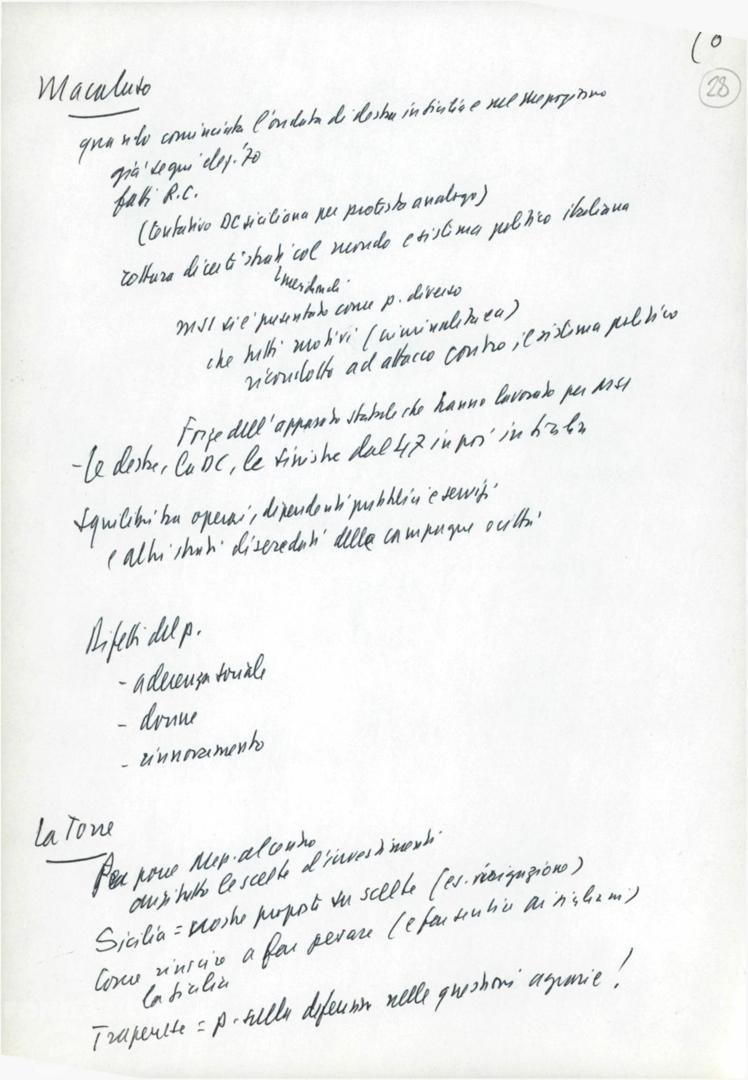 10
28
Macaluso
quando cominciata l'ondata di destra in Sicilia e nel Mezzogiorno
già segni elez. '70
fatti R.C.
(tentativo DC siciliana per protesta analoga)
rottura di certi strati col mondo e sistema politico italiano
meridionali
MSI si è presentato come p. diverso
che tutti motivi (criminalità ea)
ricondotto ad attacco contro il sistema politico
Forze dell'apparato statale che hanno lavorato per MSI
- Le destre, la DC, le sinistre dal 47 in poi in Sicilia
Squilibri tra operai, dipendenti pubblici e servizi
e altri strati diseredati delle campagne o città
Difetti del p.
- aderenza sociale
- donne
- rinnovamento
La Torre
Per porre Mezz. al centro
anzitutto le scelte d'investimenti
Sicilia = nostre proposte su scelte (es. irrigazione)
Come riuscire a far pesare (e far sentire ai siciliani)
la Sicilia
Trapanese = p. sulla difensiva nelle questioni agrarie!